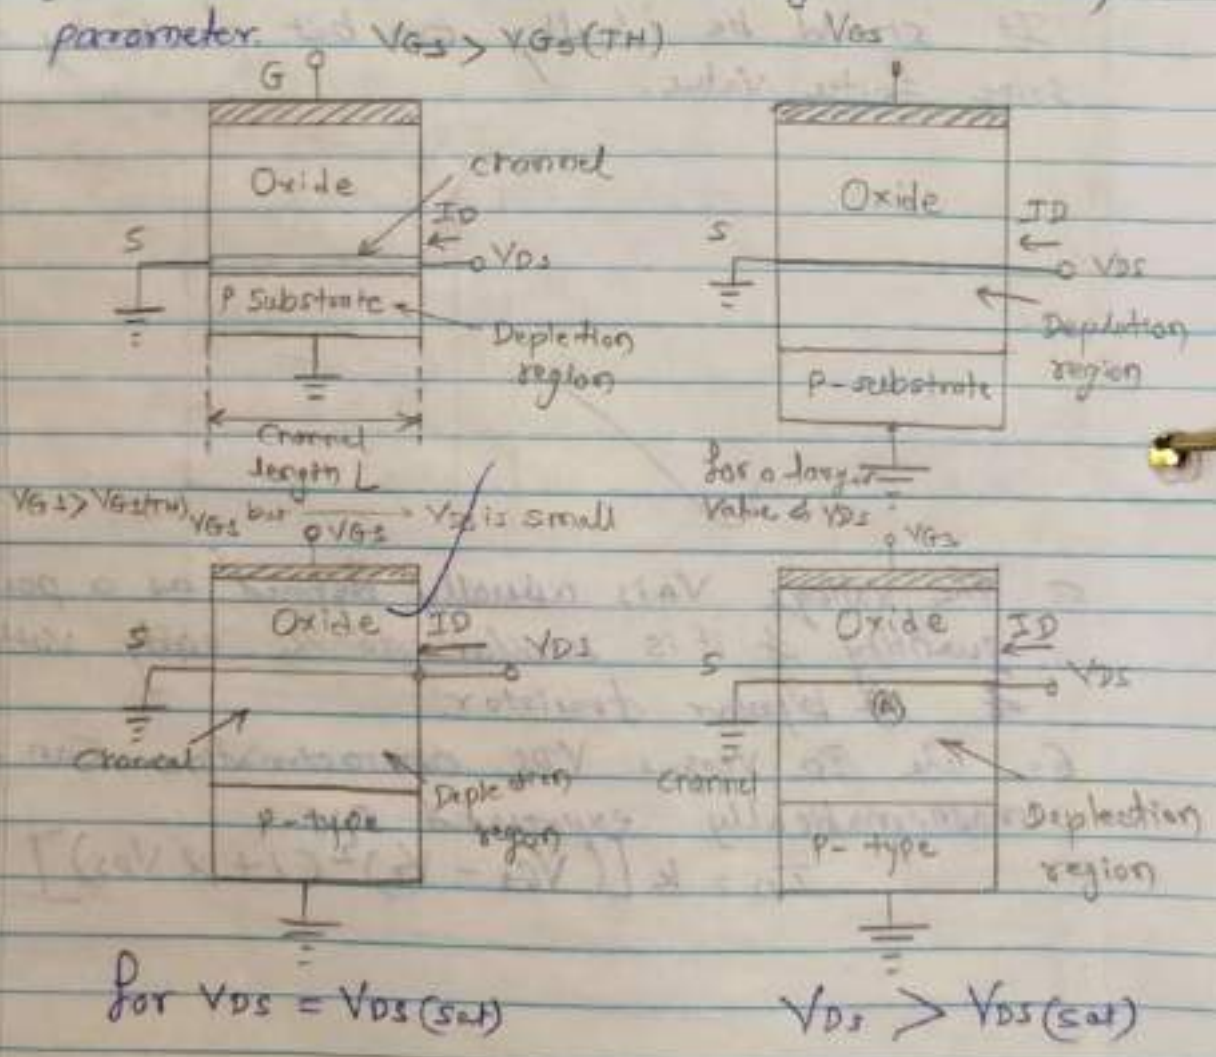 parameter. VGS > VGS(TH)
VGS
G
Oxide
channel
ID
S
VDS
P Substrate
Depletion
region
Channel
length L
Oxide
ID
S
VDS
Depletion
region
P-substrate
for a large
Value of VDS
VGS > VGS(TH) VGS but VDS is small
VGS
Oxide
ID
S
VDS
Channel
Depletion
region
P-type
for VDS = VDS(sat)
VGS
Oxide
ID
S
VDS
(A)
Channel
Deplection
region
P-type
VDS > VDS(sat)